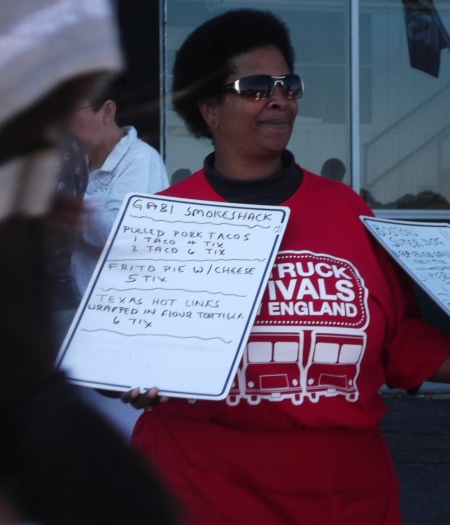 GABI SMOKESHACK
PULLED PORK TACOS
1 TACO 4 TIX
2 TACO 6 TIX
FRITO PIE W/CHEESE
5 TIX
TEXAS HOT LINKS
WRAPPED IN FLOUR TORTILLA
6 TIX
TRUCK
IVALS
ENGLAND